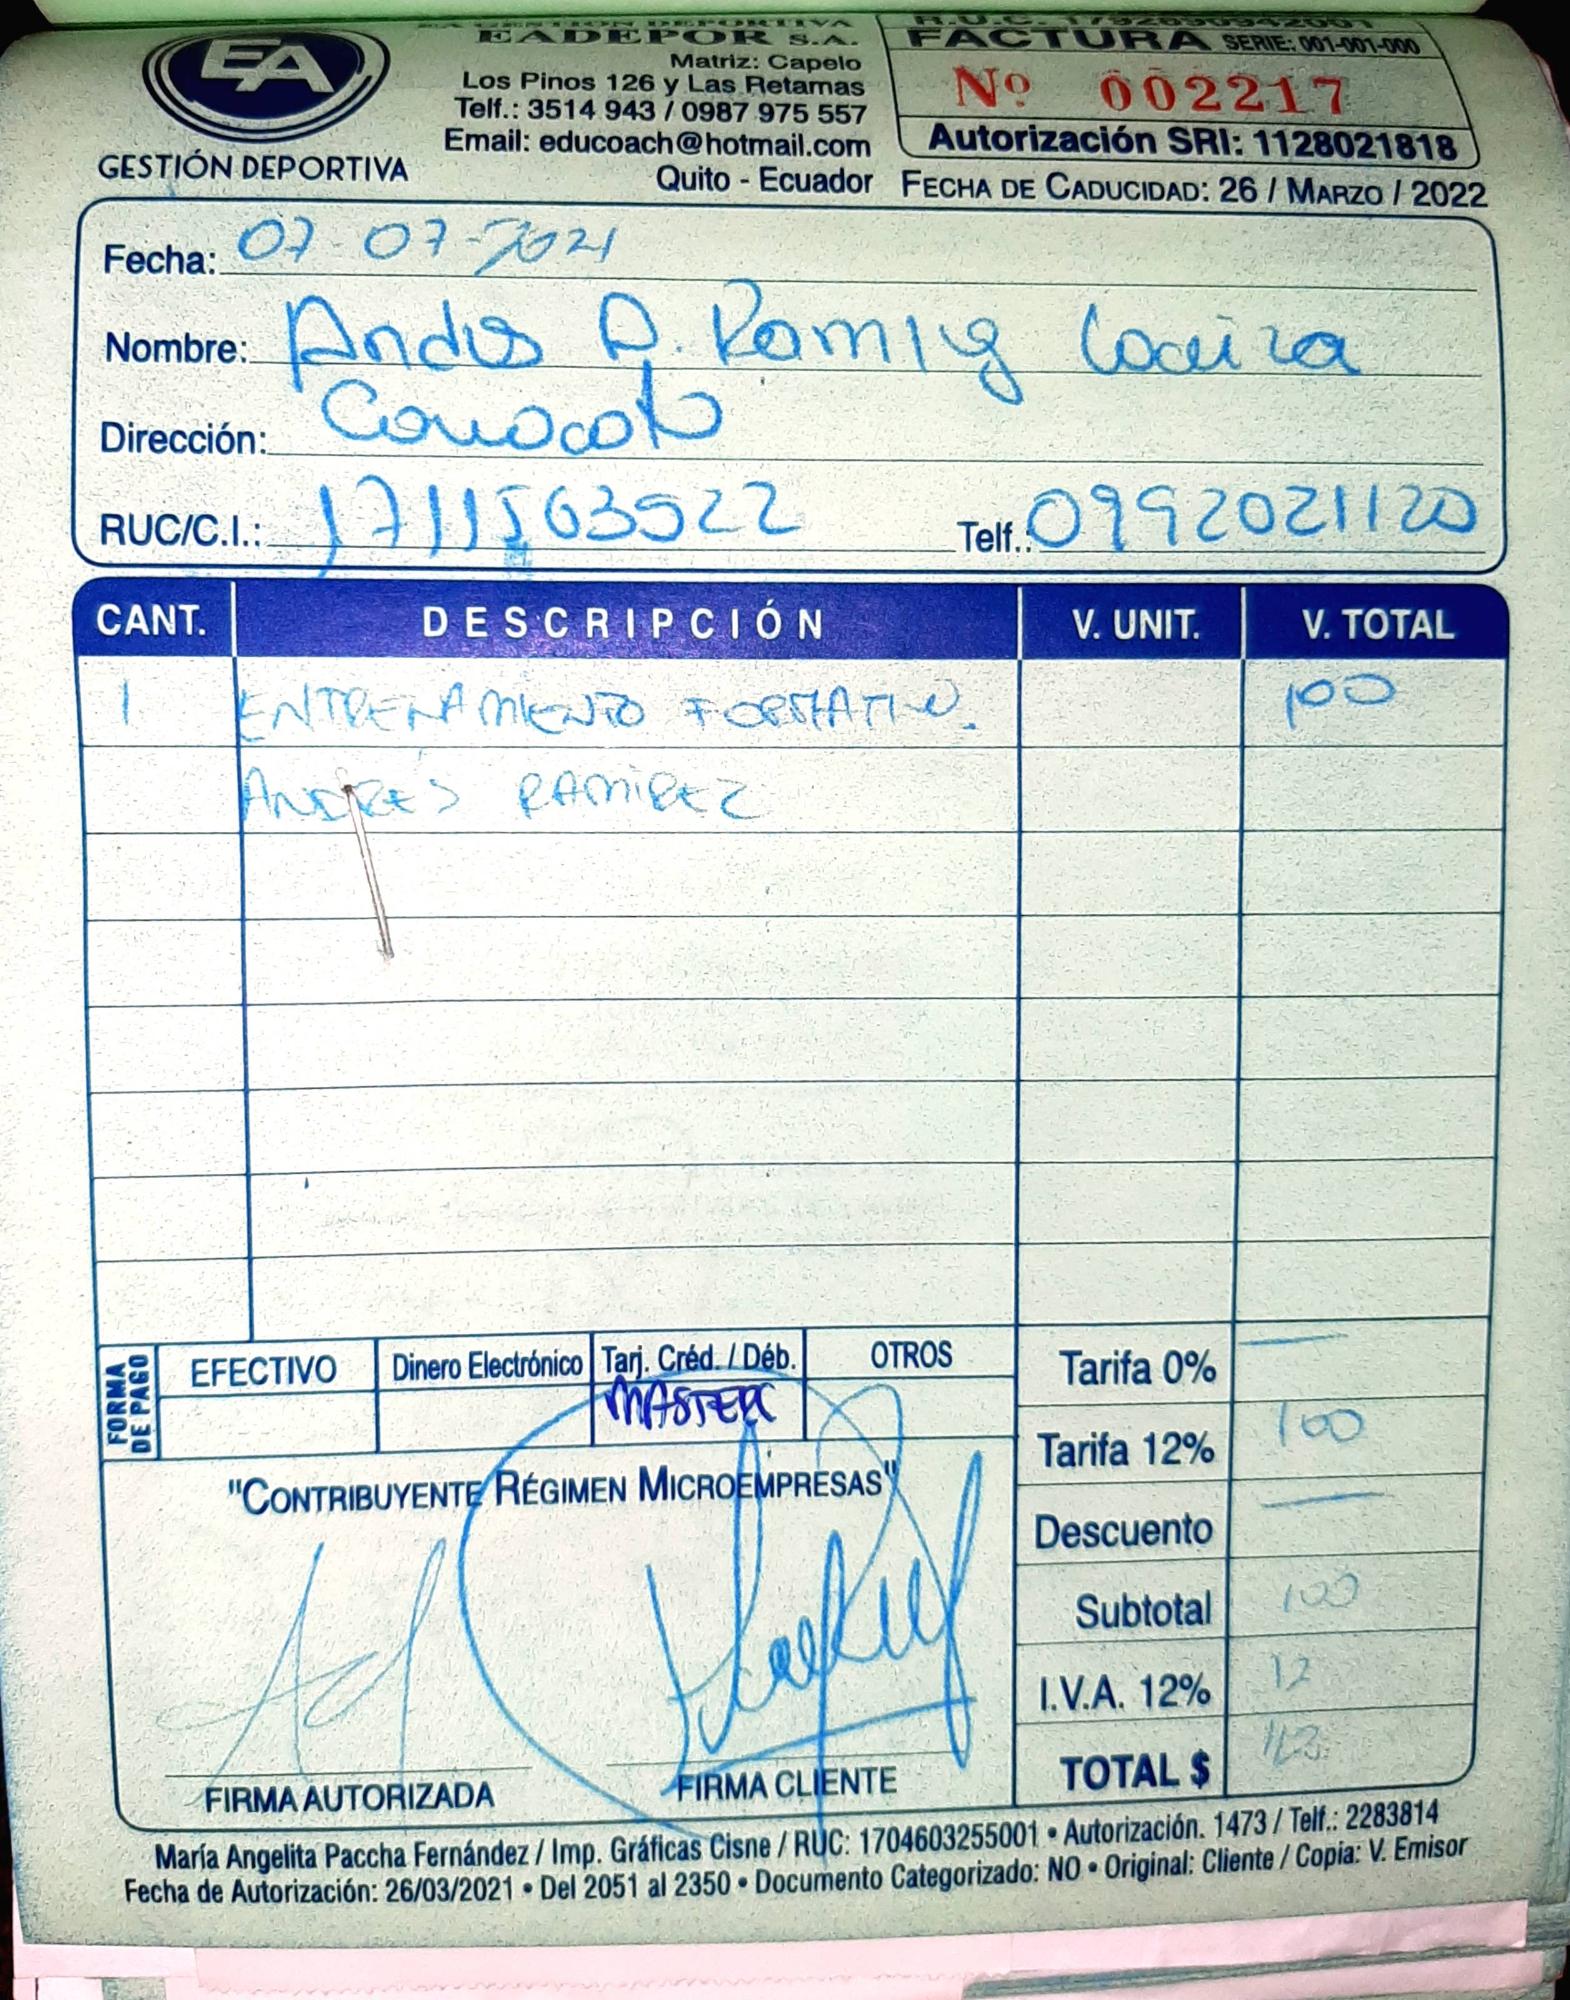 EA GESTIÓN DEPORTIVA
EADEPOR S.A.
Matriz: Capelo
Los Pinos 126 y Las Retamas
Telf.: 3514 943 / 0987 975 557
Email: educoach@hotmail.com
Quito - Ecuador
EA
GESTIÓN DEPORTIVA
R.U.C. 1792690942001
FACTURA SERIE: 001-001-000
Nº 002217
Autorización SRI: 1128021818
FECHA DE CADUCIDAD: 26 / MARZO / 2022
Fecha: 07-07-2021
Nombre: Andrés D. Ramírez
Dirección: Conocoto
RUC/C.I.: 1711563522 Telf.: 0992021120
CANT. DESCRIPCIÓN V. UNIT. V. TOTAL
1 ENTRENAMIENTO FORMATIVO. 100
ANDRÉS RAMÍREZ
FORMA DE PAGO EFECTIVO Dinero Electrónico Tarj. Créd. / Déb. OTROS
MASTER
Tarifa 0% —
Tarifa 12% 100
Descuento —
Subtotal 100
I.V.A. 12% 12
TOTAL $ 112
"CONTRIBUYENTE RÉGIMEN MICROEMPRESAS"
FIRMA AUTORIZADA FIRMA CLIENTE
María Angelita Paccha Fernández / Imp. Gráficas Cisne / RUC: 1704603255001 • Autorización. 1473 / Telf.: 2283814
Fecha de Autorización: 26/03/2021 • Del 2051 al 2350 • Documento Categorizado: NO • Original: Cliente / Copia: V. Emisor